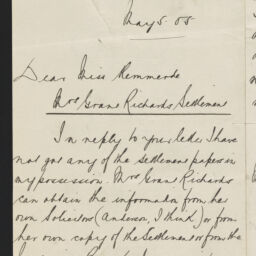 May 5. 05
Dear Miss
Mrs Grant Richards Settlement
In reply to your letter I have
not got any of the settlement papers in
my possession. Mrs Grant Richards
can obtain the information from her
own Solicitors (Anderson, I think) or from
her own copy of the Settlement or from the